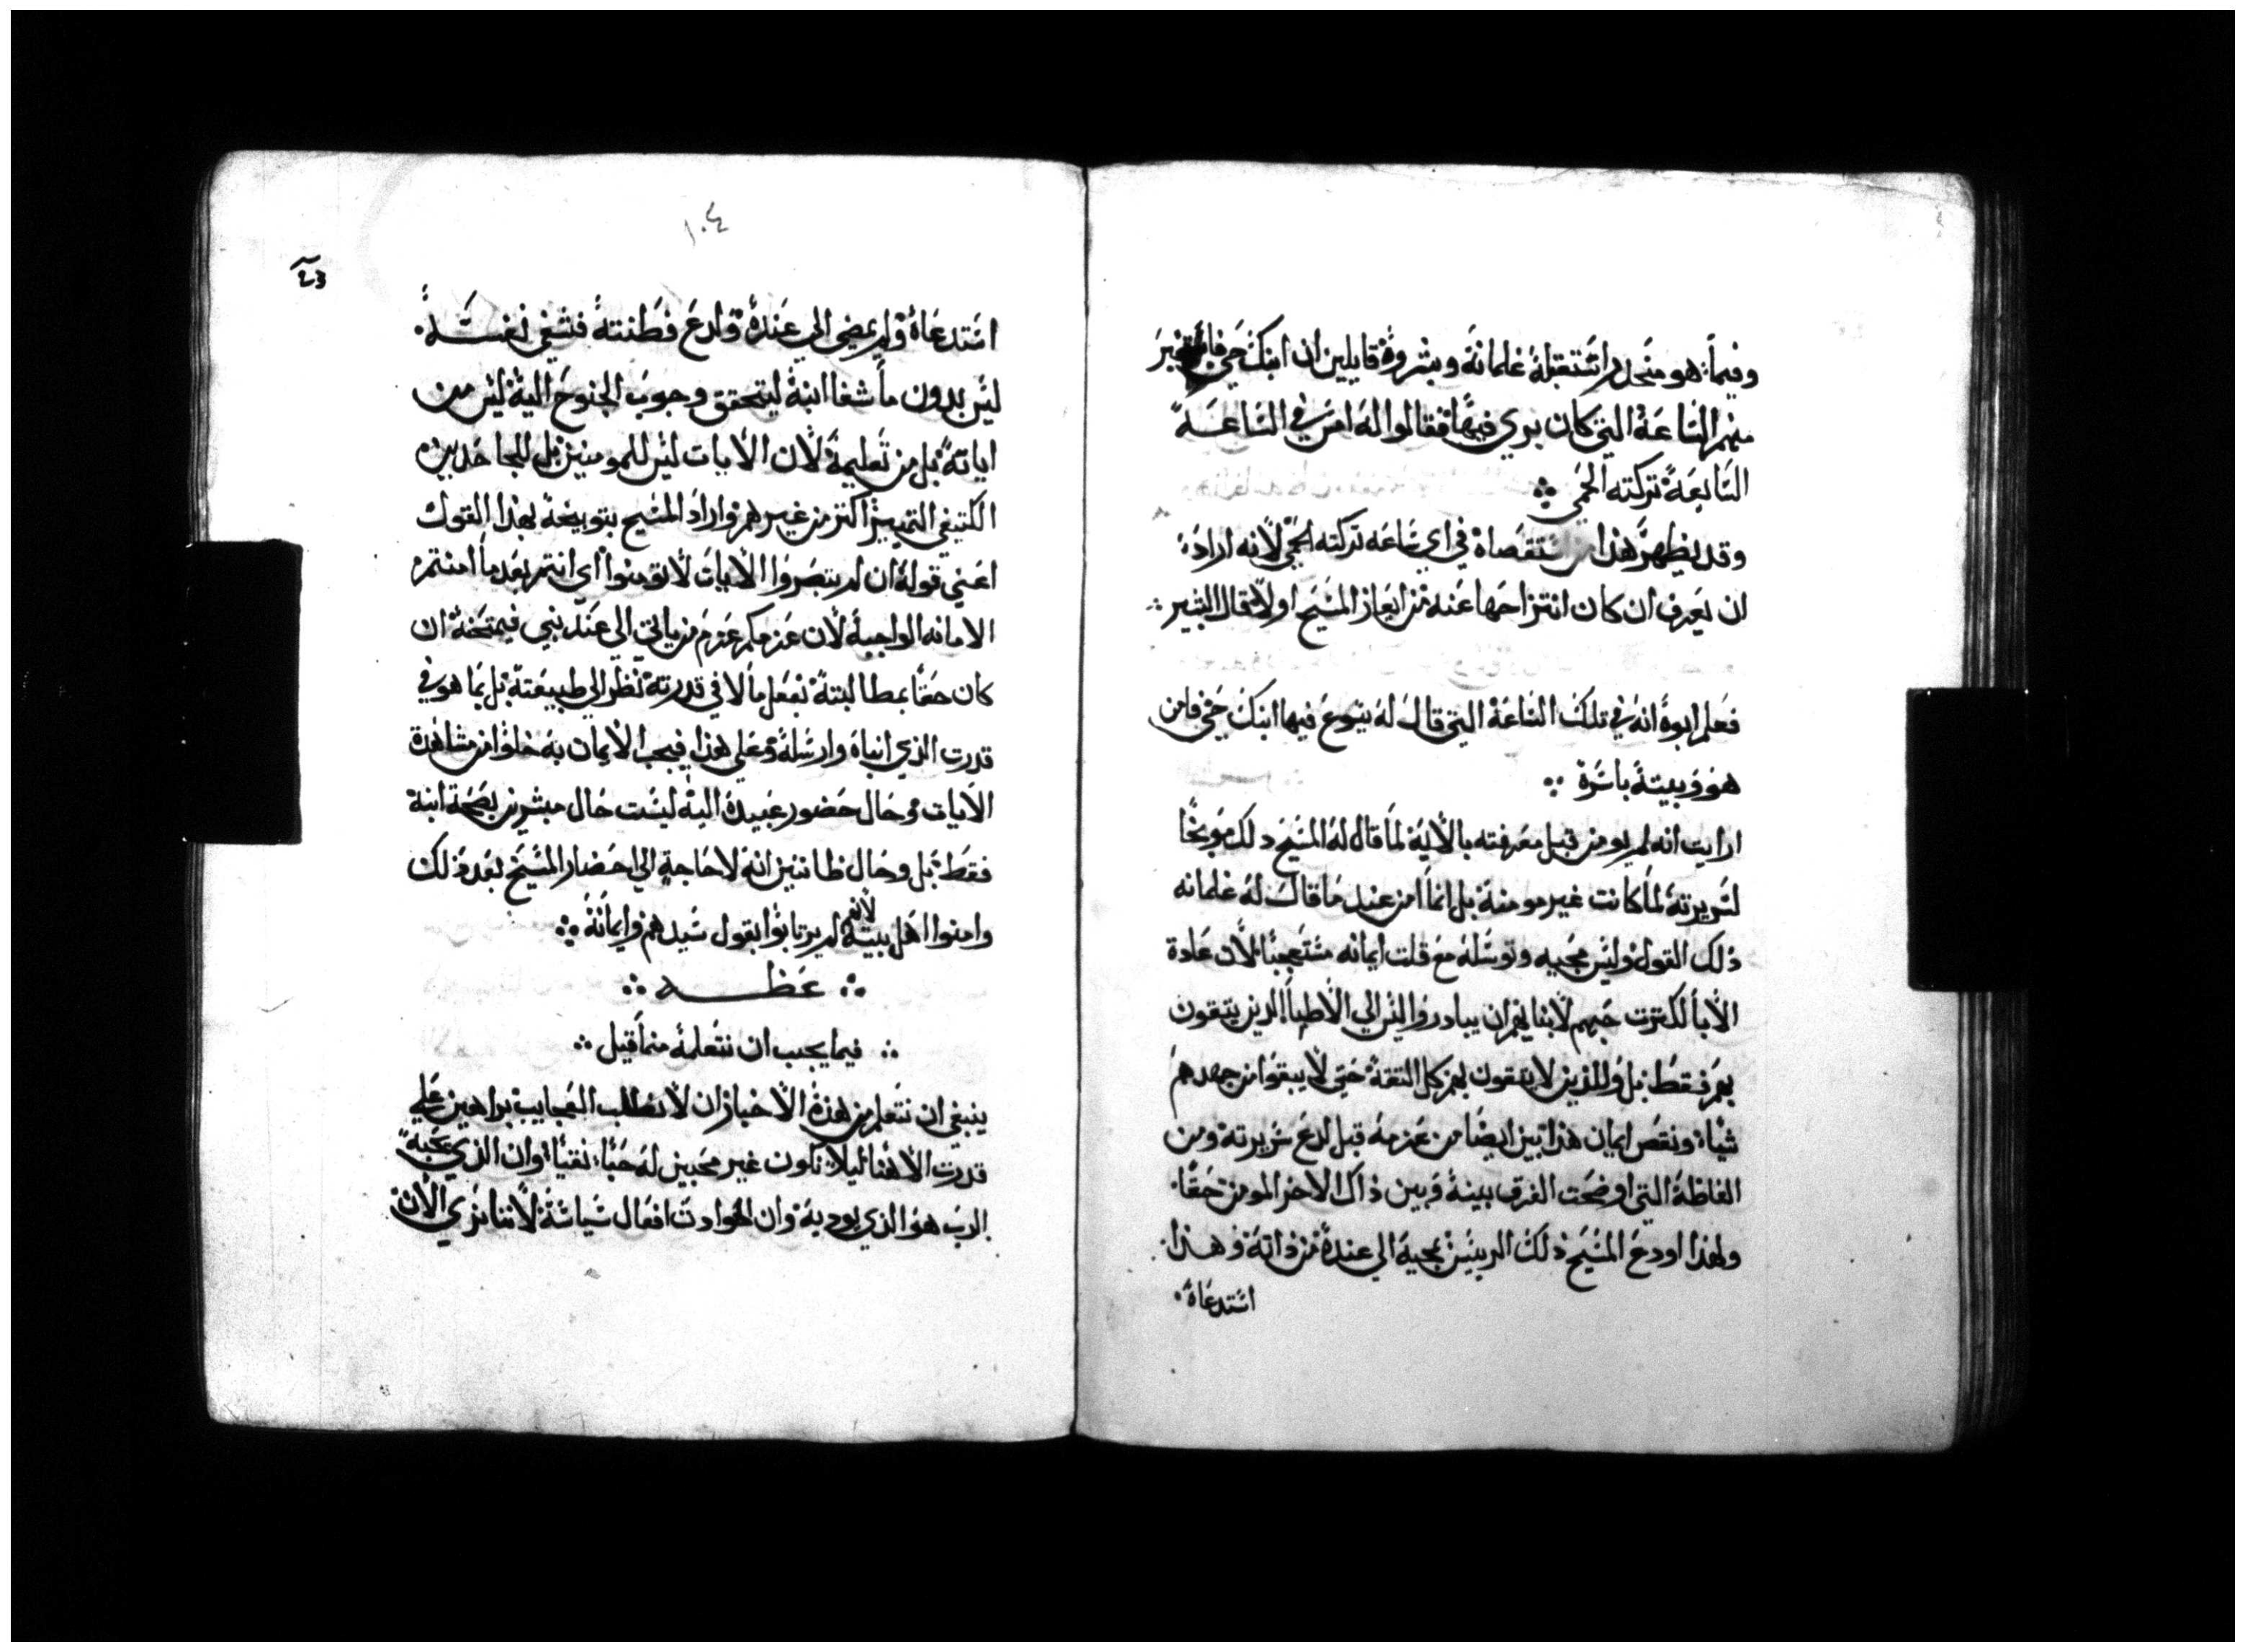 وفيما هو منحدر استقبله غلمانه وبشروه قايلين ان ابنك حي
منهم الساعة التي كان بري فيها فقالوا له امس في الساعة
السابعة تركته الحمي
وقد يظهر هذا استقصاه في اي ساعه تركته الحمي لانه اراد
ان يعرف ان كان انتزاحها عنه من ايعاز المسيح اولا قال البشير
فعلم ابوه انه في تلك الساعة التي قال له يسوع فيها ابنك حي فامن
هو وبيته باسره
ارايت انه لم يومن قبل معرفته بالاية لما قال له المسيح دلك موبخا
لسريرته لما كانت غير مومنة بل انما امن عند ما قال له غلمانه
ذلك القول وليس مجيه وتوسله مع قلت ايمانه مستعجبا لان عادة
الابا لكترت حبهم لابنايهم ان يبادروا ليس الي الاطبا الدين يتقون
بهم فقط بل والذين لا يتقون بهم كل التقة حتي لا يبقوا من جهدهم
شيا ونقص ايمان هذا تبين ايضا من عزمه قبل لدع سريرته ومن
الفاظه التي اوضحت الفرق بينه وبين ذاك الاخر المومن حقا
ولهذا اودع المسيح ذلك الرييس مجيه الي عنده من ذاته وهذا
استدعاه
١٠٤
استدعاه ولم يمضي الي عنده ولدع فطنته فشفي نفسه
ليس بدون ما شفا ابنه ليتحقق وجوب الجنوح اليه ليس من
اياته بل من تعليمه لان الايات ليس للمومنين بل للجاحدين
التمييز اكتر من غيرهم واراد المسيح بتوبيخه بهذا القول
اعني قوله ان لم تبصروا الايات لا تومنوا اي انتم بعد ما امنتم
الامانه الواجبة لان عزمكم عزم من ياتي الي عند نبي فيمتحنه ان
كان حقا بمطالبته بفعل ما لا في قدرته نظر الي طبيعته بل بما هو في
قدرت الذي انباه وارسله وعلي هذا فيجب الايمان به خلوا من مشاهدة
الايات وحال حضور عبيده اليه ليست حال مبشرين بصحة ابنه
فقط بل وحال ظانين انه لا حاجة الي احضار المسيح بعد ذلك
وامنوا اهل بيته لانهم لم يرتابوا بقول سيدهم وايمانه
عظه
فيما يجب ان نتعلمه مما قيل
ينبغي ان نتعلم من هذه الاخبار ان لا نطلب العجايب براهين علي
قدرت الاهنا ليلا نكون غير محبين له حبا نقيا وان الذي يحبه
الرب هو الذي يودبه وان الحوادت افعال سياسته لاننا نري الان